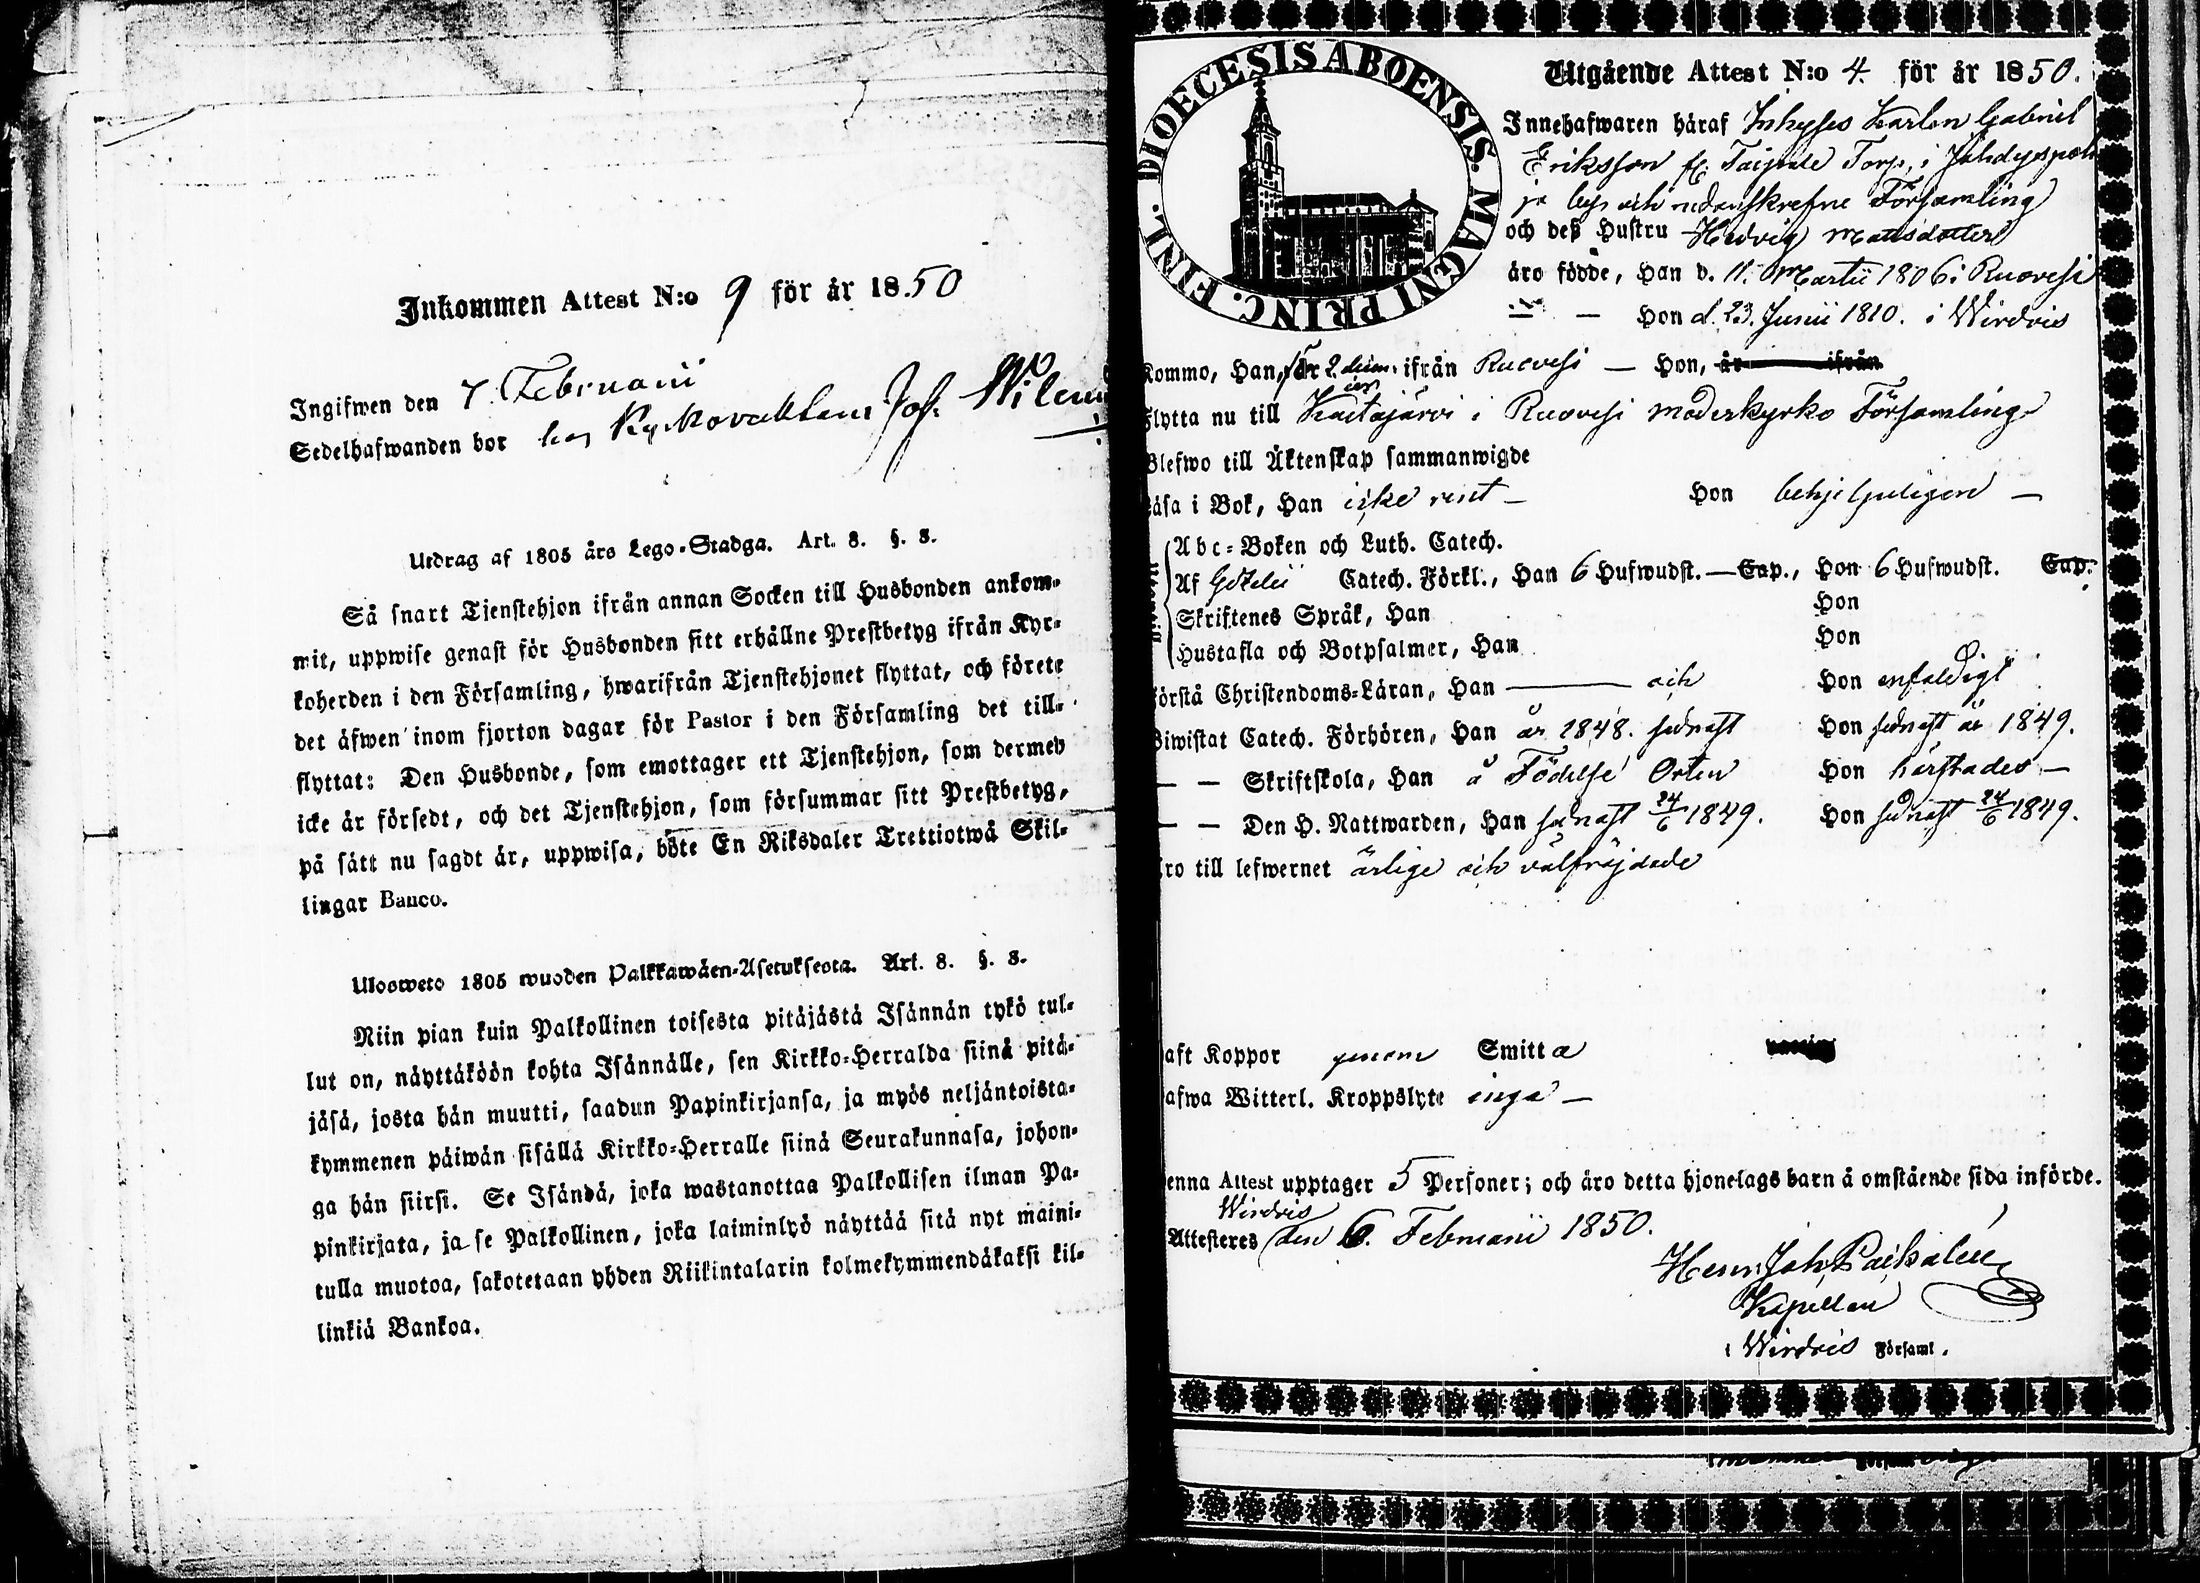 Inkommen Attest N:o 9 för år 18.50
Ingifwen den 7 Februarii
Sedelhafwanden bor hos Joh. Wilen
Utdrag af 1805 års Lego-Stadga. Art. 8. §. 8.
Så snart Tjenstehjon ifrån annan Socken till Husbonden ankom-
mit, uppwise genast för Husbonden sitt erhållne Prestbetyg ifrån Kyr-
koherden i den Församling, hwarifrån Tjenstehjonet flyttat, och förete
det äfwen inom fjorton dagar för Pastor i den Församling det till-
flyttat: Den Husbonde, som emottager ett Tjenstehjon, som dermed
icke är försedt, och det Tjenstehjon, som försummar sitt Prestbetyg,
på sätt nu sagdt är, uppwisa, böte En Riksdaler Trettiotwå Skil-
lingar Banco.
Ulosweto 1805 wuoden Palkkawäen-Asetuksesta. Art. 8. §. 8.
Niin pian kuin Palkollinen toisesta pitäjästä Isännän tykö tul-
lut on, näyttäköön kohta Isännälle, sen Kirkko-Herralda siinä pitä-
jäsä, josta hän muutti, saadun Papinkirjansa, ja myös neljäntoista-
kymmenen päiwän sisällä Kirkko-Herralle siinä Seurakunnasa, johon-
ga hän siirsi. Se Isändä, joka wastanottaa Palkollisen ilman Pa-
pinkirjata, ja se Palkollinen, joka laiminlyö näyttää sitä nyt maini-
tulla muotoa, sakotetaan yhden Riikintalarin kolmekymmendäkaksi kil-
linkiä Bankoa.
DIOECESIS ABOENSIS. MAGNI PRINC. FINL.
Utgående Attest N:o 4 för år 1850.
Innehafwaren häraf Inhyses Karlen Gabriel
Eriksson fr. Taipale Torp, i Jähdyspoh
ja by och nedanskrefne Församling
och deß Hustru Hedvig Mattsdotter
äro födde, Han d. 11. Martii 1806 i Ruovesi
— Hon d. 23. Junii 1810. i Wirdois
Kommo, Han, ifrån Ruovesi — Hon, år ifrån
Flytta nu till Kaitajärvi i Ruovesi moderkyrko Församling
Blefwo till Äktenskap sammanwigde
Läsa i Bok, Han icke rent — Hon behjelpeligen —
Abc-Boken och Luth. Catech.
Af Gezelii Catech. Förkl., Han 6 Hufwudst. — Cap., Hon 6 Hufwudst. Cap.
Skriftenes Språk, Han Hon
Hustafla och Botpsalmer, Han Hon
Förstå Christendoms-Läran, Han — och Hon enfaldigt
Biwistat Catech. Förhören, Han år 1848. sednast Hon sednast år 1849.
— — Skriftskola, Han å Födelse Orten Hon härstädes —
— — Den H. Nattwarden, Han sednast 24/6 1849. Hon sednast 24/6 1849.
Äro till lefwernet ärlige och välfrejdade
Haft Koppor genom Smitta
Hafwa Witterl. Kroppslyte inga —
Denna Attest upptager 5 Personer; och äro detta hjonelags barn å omstående sida införde.
Wirdois
Attesteres den 6. Februarii 1850.
Herm. Joh. Paçhalen
Kapellan
i Wirdois Församl.